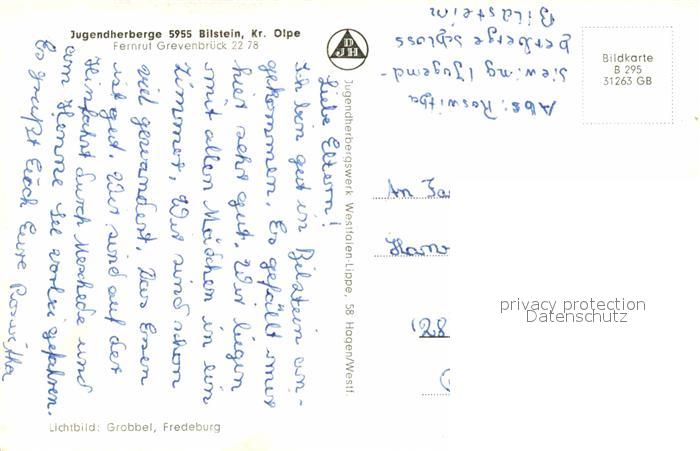 Jugendherberge 5955 Bilstein, Kr. Olpe
Fernruf Grevenbrück 22 78
DJH
Jugendherbergswerk Westfalen-Lippe, 58 Hagen/Westf.
Liebe Eltern!
Ich bin gut in Bilstein an-
gekommen. Es gefällt mir
hier sehr gut. Wir liegen
mit allen Mädchen in ein
Zimmer. Wir sind schon
viel gewandert. Das Essen
ist gut. Wir sind auf der
Hinfahrt durch Meschede und
am Henne See vorbei gefahren.
Es grüßt Euch Eure Roswitha
Lichtbild: Grobbel, Fredeburg
Abs: Roswitha
Siewing Jugend-
herberge Schloss
Bildstein
Bildkarte
B 295
31263 GB
An Fa
'28
privacy protection
Datenschutz